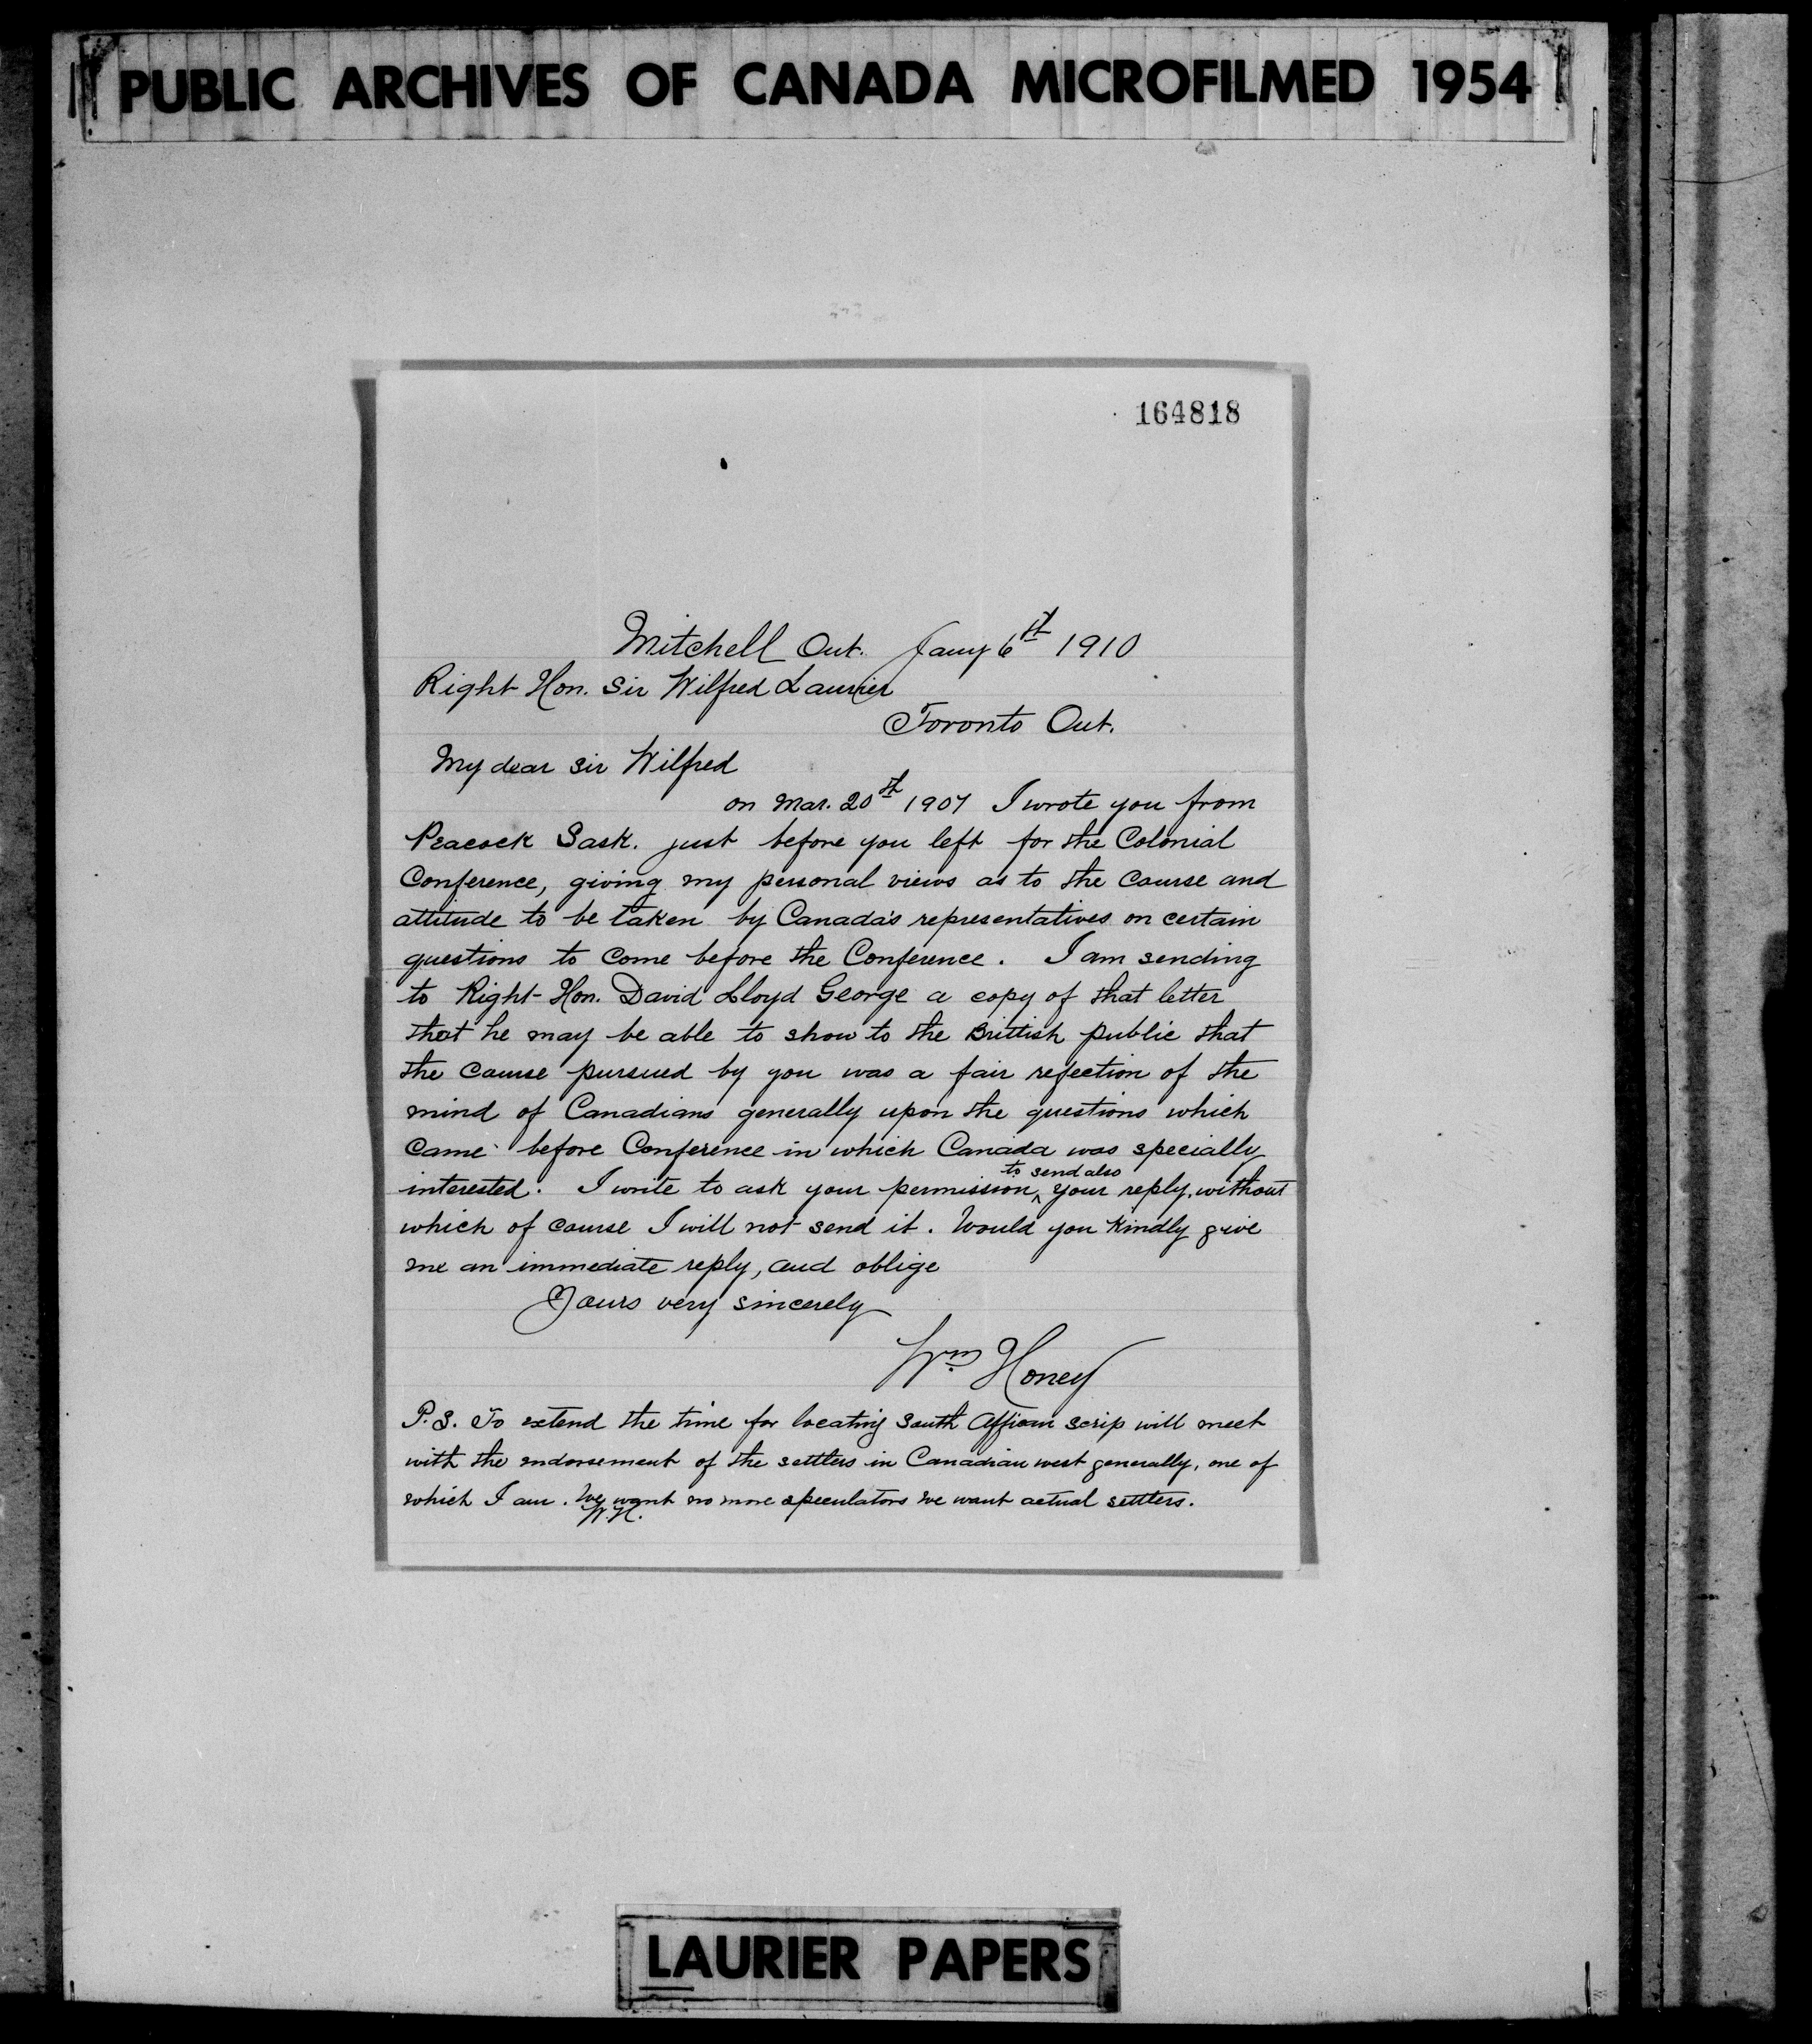 PUBLIC ARCHIVES OF CANADA MICROFILMED 1954
164818
Mitchell Ont. Jany 6th 1910
Right Hon. Sir Wilfred Laurier
Toronto Ont.
My dear Sir Wilfred
on Mar. 20th 1907 I wrote you from
Peacock Sask. just before you left for the Colonial
Conference, giving my personal views as to the course and
attitude to be taken by Canada's representatives on certain
questions to come before the Conference. I am sending
to Right Hon. David Lloyd George a copy of that letter
that he may be able to show to the Brittish public that
the course pursued by you was a fair reflection of the
mind of Canadians generally upon the questions which
came before Conference in which Canada was specially
to send also
interested. I write to ask your permission ^ your reply, without
which of course I will not send it. Would you kindly give
me an immediate reply, and oblige
Yours very sincerely
Wm Honey
P.S. To extend the time for locating South African scrip will meet
with the endorsement of the settlers in Canadian west generally, one of
which I am. We want no more speculators we want actual settlers.
W.H.
LAURIER PAPERS